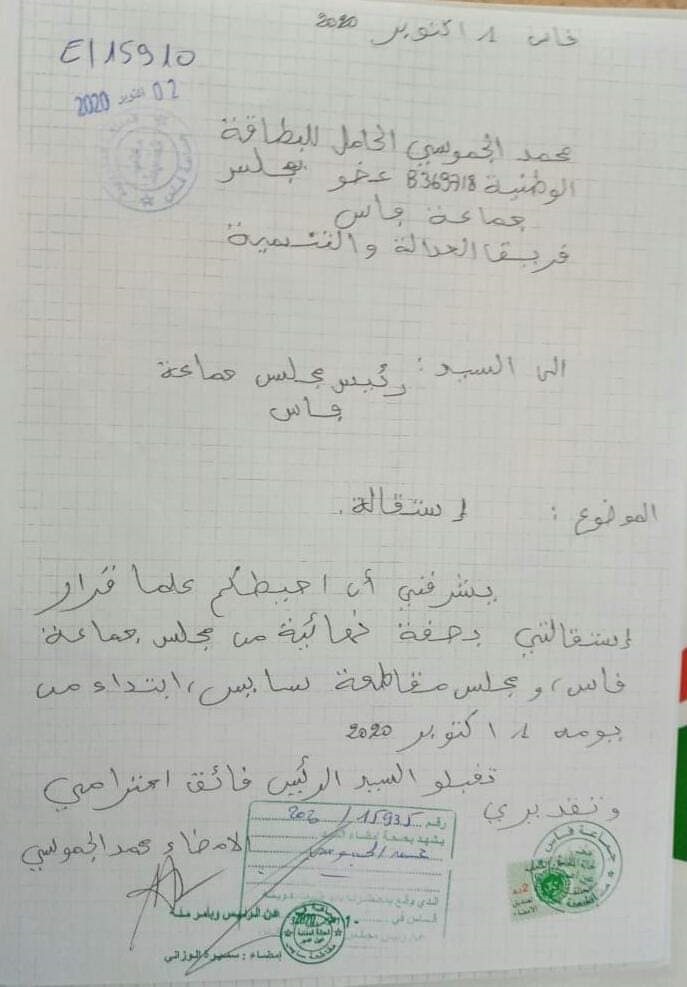 فاس 1 اكتوبر 2020
E115910
02 اكتوبر 2020
محمد الجموسي الحامل للبطاقة
الوطنية B369718 عضو مجلس
جماعة فاس
فريق العدالة والتنمية
الى السيد : رئيس مجلس جماعة
فاس
الموضوع : إستقالة .
يشرفني أن احيطكم علما قرار
إستقالتي بصفة نهائية من مجلس جماعة
فاس، و مجلس مقاطعة سايس، ابتداء من
يومه 1 اكتوبر 2020
تقبلو السيد الرئيس فائق احترامي
و تقديري
الامضاء محمد الجموسي
رقم 15935 / 2020
يشهد بصحة إمضاء
محمد الجموسي
عن الرئيس وبأمر منه
إمضاء : سميرة الوزاني
جماعة فاس